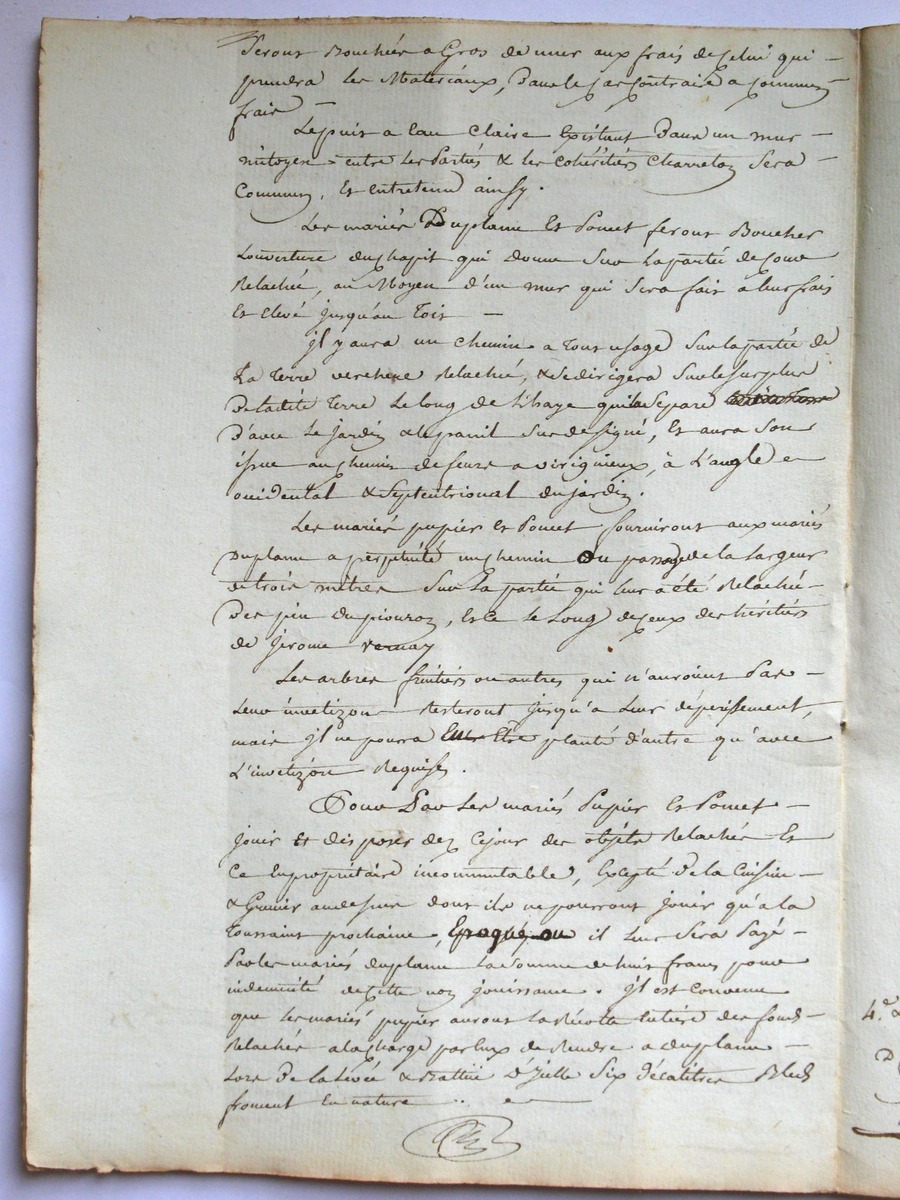 Seront Bouchées a Gros de mur aux frais de Celui qui
prendra les Materiaux, Dans le Cas Contraire a Communs
frais
Le puis a Eau Claire Existant Dans un mur
mitoyen entre les Partiés & les cohéritiérs Charreton Sera
Commun, Et entretenu ainsy.
Les mariés Duplame Et Pomet feront Boucher
Louverture du chapit qui donne Sur La partié de Cour
Relachée, au Moyen d'un mur qui Sera fait a leur frais
Et Elevé jusqu'au Toit
il y aura un chemin a Tout usage Sur la partié de
La Terre verchere Relachée, & Se dirigera Sur le Surplus
De la dité Terre Le long de L'haye qui la Separe
D'avec Le Jardin & le pasnil Sus designé, Et aura Son
issue au chemin de feurs a virignieux, à L'angle
occidental & Septentrional du jardin.
Les mariés pupier Et Pomet fourniront aux mariés
Duplame a perpetuité un chemin Ou passage de la Largeur
de trois métres Sur La partié qui leur a été Relachée
Des pieu du piouron, Et Le Long de Ceux des héritiérs
de Jerome vernay
Les arbres fruitiérs ou autres qui n'auroient Pas
Leur invetizon Resteront Jusqu'a Leur déperissement,
mais il ne poura Etre planté d'autre qu'avec
L'invetizon Requise.
Pour Par Les mariés Pupier Et Pomet
Jouir Et disposer dez Cejour des objéts Relachés Et
Ce En propriétaire incommutable, Excepté De la Cuisine
& Grenier au dessus dont ils ne pourront jouir qu'a la
Toussaint prochaine, Epoque ou il leur Sera Payé
Par les mariés duplame La Somme de huit francs pour
indemnité de Cette non jouissance. il est Convenu
que les mariés pupier auront La Récolte Entiére des fonds
Relachés a la Charge par Eux de Rendre a duplame
Lors De la Levée & Battue D'icelle Six décalitres Bled
froment En nature
4.e
D